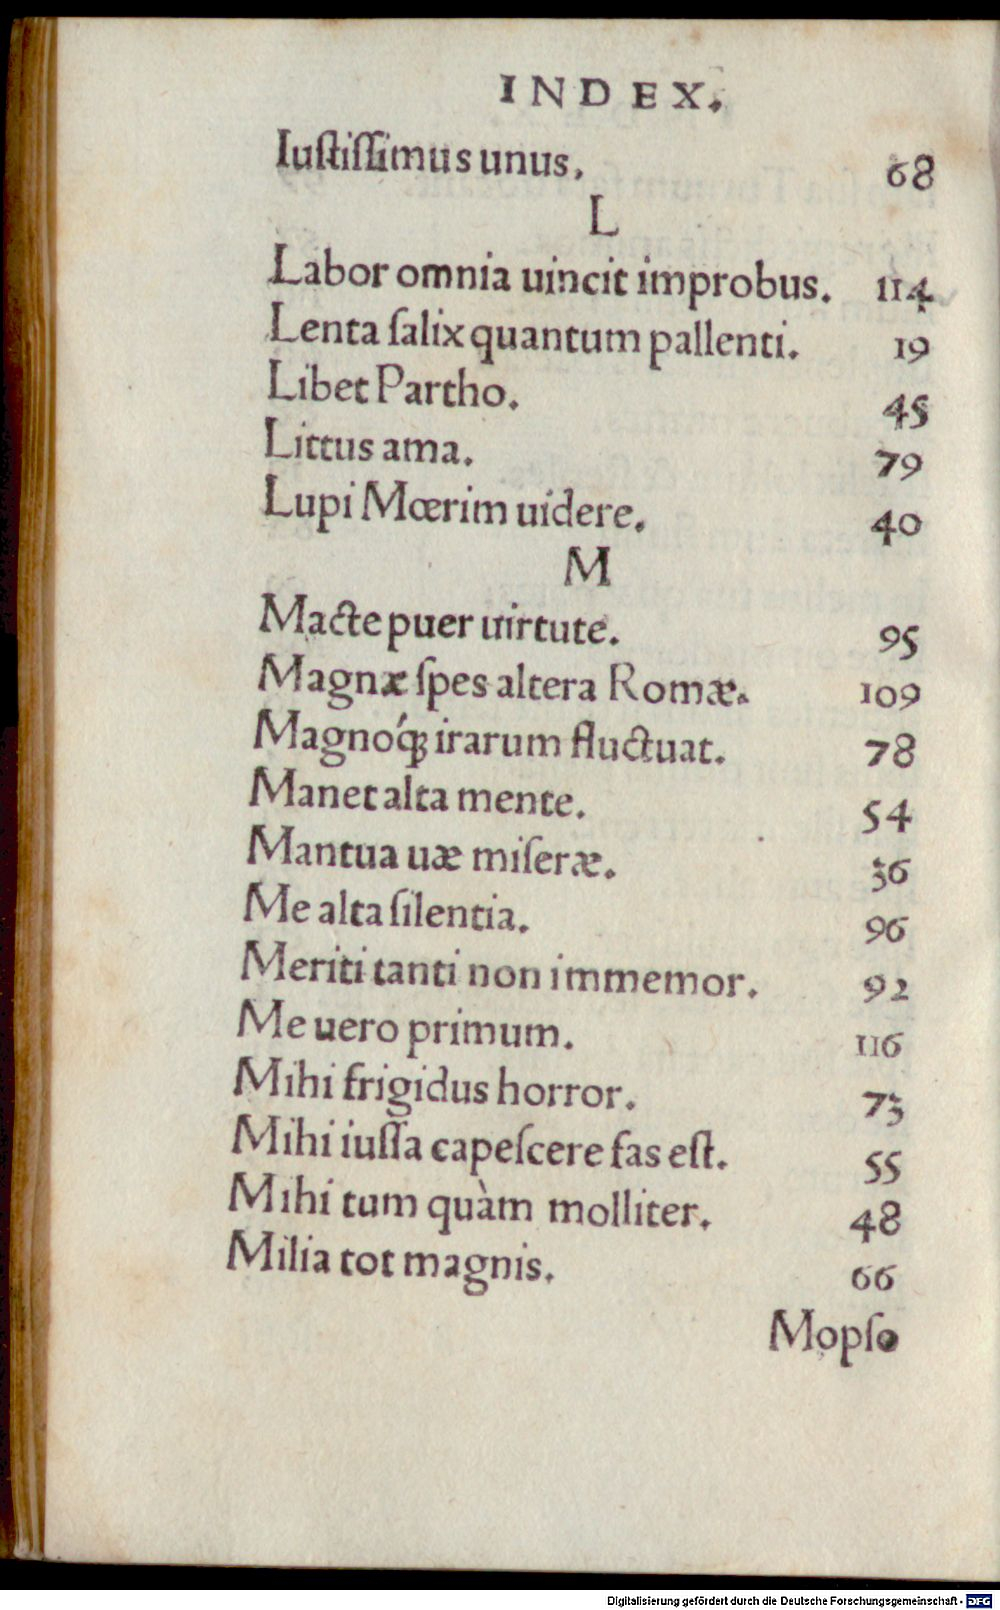 INDEX.
Iuſtiſſimus unus. 68
L
Labor omnia uincit improbus. 114
Lenta ſalix quantum pallenti. 19
Libet Partho. 45
Littus ama. 79
Lupi Mœrim uidere. 40
M
Macte puer uirtute. 95
Magnæ ſpes altera Romæ. 109
Magnoq́ꝫ irarum fluctuat. 78
Manet alta mente. 54
Mantua uæ miſeræ. 36
Me alta ſilentia. 96
Meriti tanti non immemor. 92
Me uero primum. 116
Mihi frigidus horror. 73
Mihi iuſſa capeſcere fas eſt. 55
Mihi tum quàm molliter. 48
Milia tot magnis. 66
Mopſo
Digitalisierung gefördert durch die Deutsche Forschungsgemeinschaft - DFG